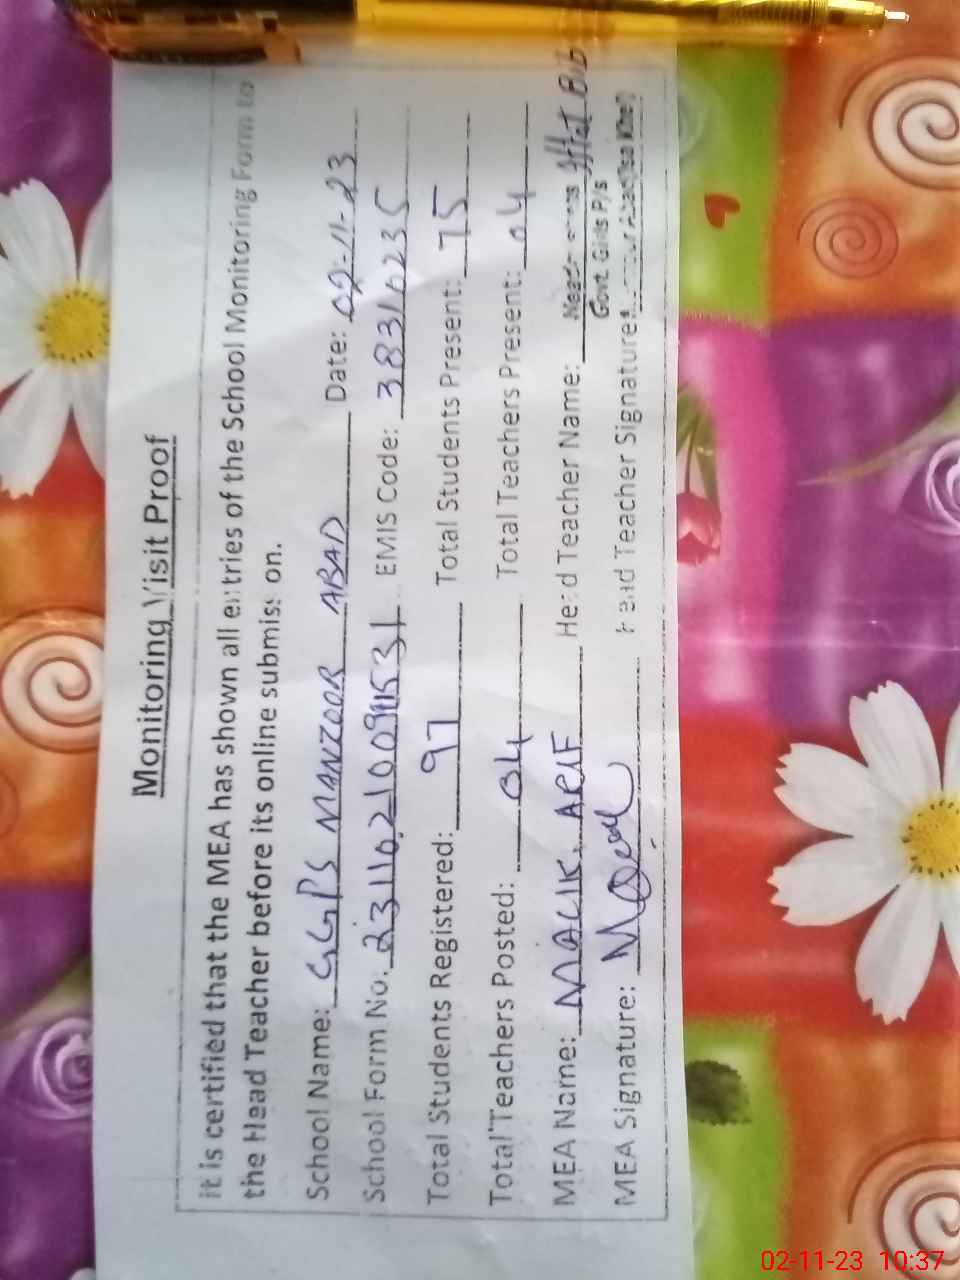 Monitoring Visit Proof
it is certified that the MEA has shown all entries of the School Monitoring Form to
the Head Teacher before its online submission.
School Name: GGPS MANZOOR ABAD Date: 02-11-23
School Form No: EMIS Code: 38310235
Total Students Registered: 97 Total Students Present: 75
Total Teachers Posted: 04 Total Teachers Present: 04
MEA Name: MALIK. ARIF Head Teacher Name:
Govt Girls P/s
MEA Signature: Head Teacher Signature:
02-11-23 10:37